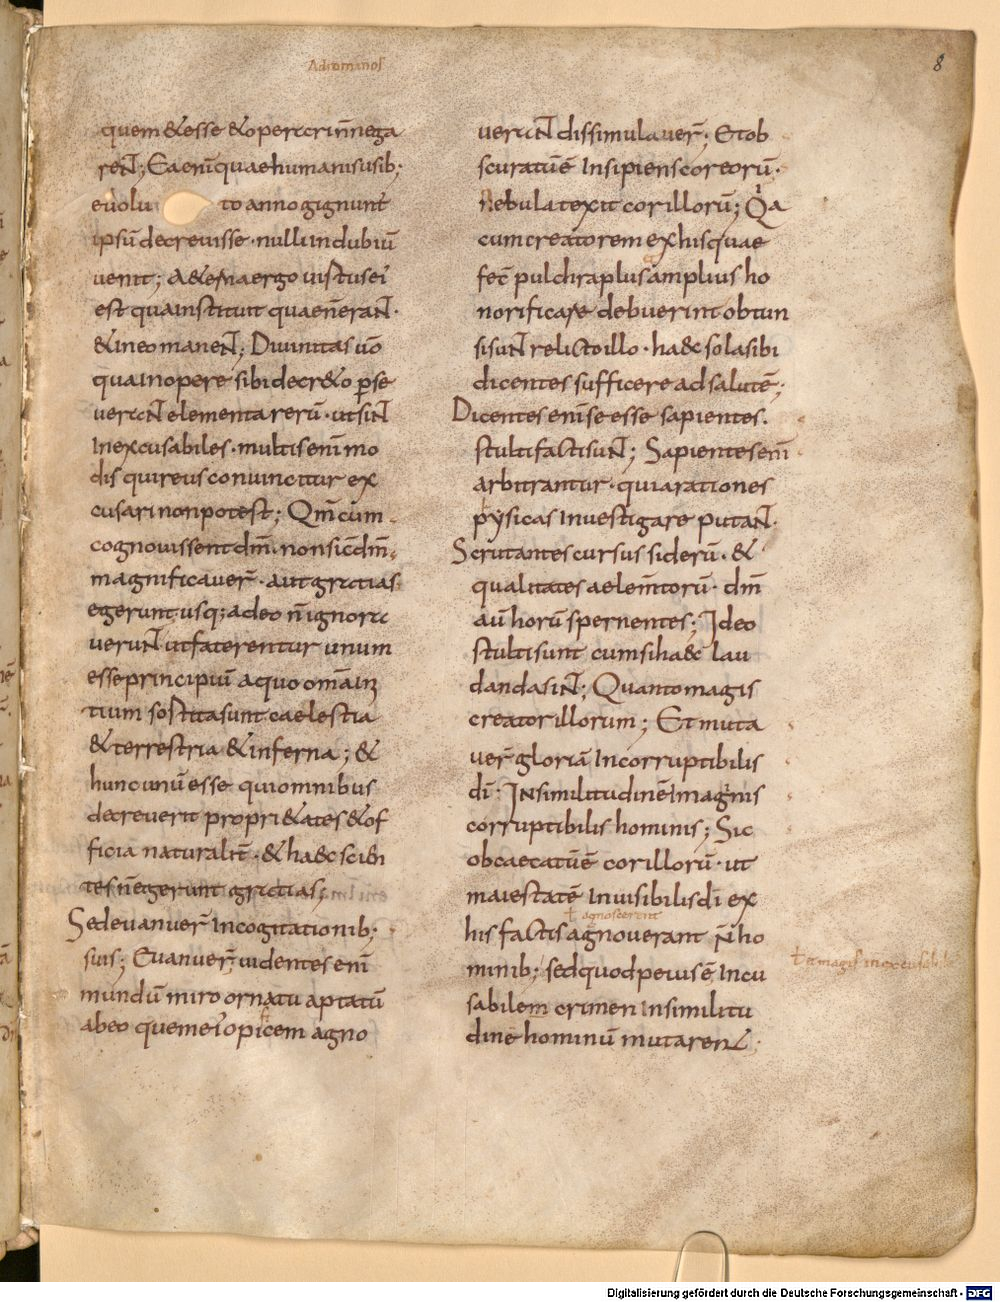 Adromanos
8
quem &esse &operari n̄nega
reNt; Ea enī quae humanis usib;
euolu to anno gignunt
ipsū decreuisse · nulli in dubiū
uenit; A&erna ergo uirtus ei
est qua instituit quae n̄ erant ·
& in eo manent; Diuinitas u̅o
qua in opere sibi decr&o p̱ se
uerant elementa rerū · ut sint
Inexcusabiles · multis enī mo
dis qui reus conuincitur ex
cusari non potest; Qm̅ cum
cognouissent dm̅ · non sic dm̅
magnificauer̅ · aut gratias
egerunt usq; adeo n̄ ignora
uerunt ut faterentur unum
esse principiū a quo omniū
tium sortita sunt caelestia
& terrestria & inferna; &
hunc unū esse qui omnibus
decreuerit propri&ates & of
ficia naturalit̅ · & haec scien
tes n̄ egerunt gratias;
Sed euanuer̅ In cogitationib;
suis; Euanuer̅ uidentes enī
mundū miro ornatu aptatū
ab eo quem ei opificem agno
uerant dissimulauer̅; Et ob
scuratū ē Insipiens cor eorū ·
Nebula texit cor illorū; Qa
cum creatorem ex his quae
fec̅ pulchra plus amplius ho
norificare debuerint obtun
si sunt relicto illo · haec sola sibi
dicentes sufficere ad salutē;
Dicentes enī se esse sapientes ·
stulti facti sunt; Sapientes enī
arbitrantur · quia rationes
pysicas Inuestigare putant ·
Scrutantes cursus siderū · &
qualitates aelem̅torū · dm̅
au̅ horū spernentes; Ideo
stulti sunt cum si haec lau
danda sint; Quanto magis
creator illorum; Et muta
uer̅ gloriā Incorruptibilis
di̅ · In similitudinē Imaginis
corruptibilis hominis; Sic
obcaecatū ē cor illorū · ut
maiestatē Inuisibilis di̅ ex
ł agnoscerent
his factis agnouerant n̄ ho
minib; sed quod peius ē Incu
ł a magis inexcusabile
sabilem crimen In similitu
dinē hominū mutarent ·
Digitalisierung gefördert durch die Deutsche Forschungsgemeinschaft - DFG